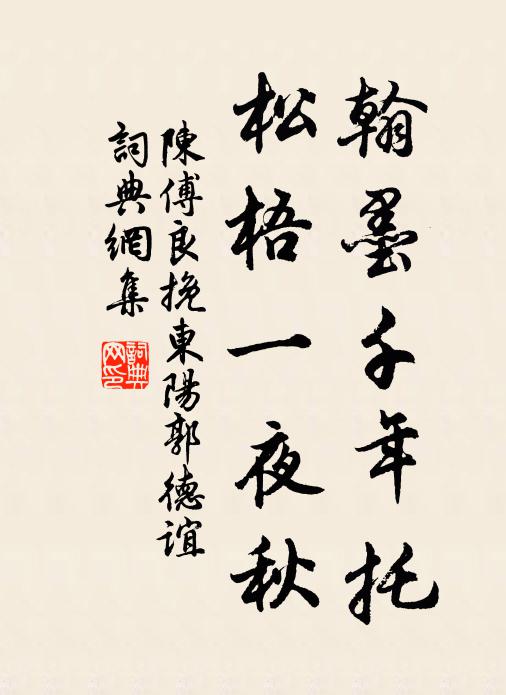 翰墨千年托
松梧一夜秋
陳傅良挽東陽郭德誼
詞典網集
詞典网印